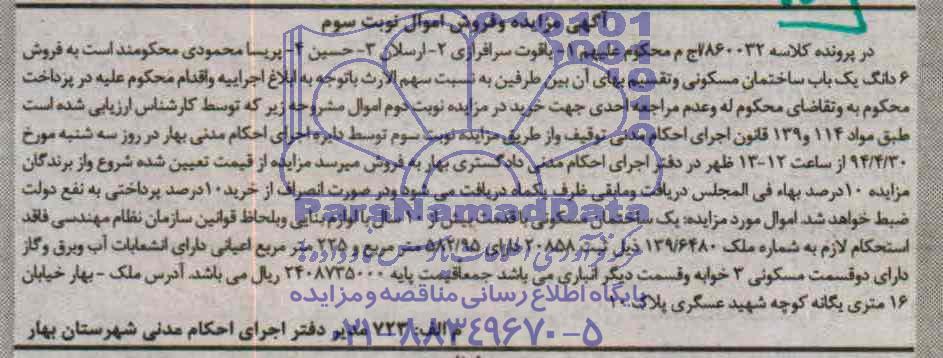 آگهی مزایده وفروش اموال نوبت سوم
در پرونده کلاسه ۸۶۰۰۳۲/اج م محکوم علیهم ۱- یاقوت سرافرازی ۲- ارسلان ۳- حسین ۴- پریسا محمودی محکومند است به فروش
۶ دانگ یک باب ساختمان مسکونی وتقسیم بهای آن بین طرفین به نسبت سهم الارث باتوجه به ابلاغ اجراییه واقدام محکوم علیه در پرداخت
محکوم به وتقاضای محکوم له وعدم مراجعه احدی جهت خرید در مزایده نوبت دوم اموال مشروحه زیر که توسط کارشناس ارزیابی شده است
طبق مواد ۱۱۴ و۱۳۹ قانون اجرای احکام مدنی توقیف واز طریق مزایده نوبت سوم توسط دایره اجرای احکام مدنی بهار در روز سه شنبه مورخ
۹۴/۴/۳۰ از ساعت ۱۲-۱۳ ظهر در دفتر اجرای احکام مدنی دادگستری بهار به فروش میرسد مزایده از قیمت تعیین شده شروع واز برندگان
مزایده ۱۰درصد بهاء فی المجلس دریافت ومابقی ظرف یکماه دریافت می شود ودر صورت انصراف از خرید۱۰درصد پرداختی به نفع دولت
ضبط خواهد شد. اموال مورد مزایده: یک ساختمان مسکونی با قدمت بیش از ۱۰ سال با لوازم بنایی وبلحاظ قوانین سازمان نظام مهندسی فاقد
استحکام لازم به شماره ملک ۱۳۹/۶۴۸۰ ذیل ثبت ۲۰۸۵۸ دارای ۵۸۴/۹۵ متر مربع و ۲۲۵ متر مربع اعیانی دارای انشعابات آب وبرق وگاز
دارای دوقسمت مسکونی ۳ خوابه وقسمت دیگر انباری می باشد جمعاقیمت پایه ۲۴۰۸۷۳۵۰۰۰ ریال می باشد. آدرس ملک - بهار خیابان
۱۶ متری یگانه کوچه شهید عسگری پلاک
م الف: ۷۲۳ مدیر دفتر اجرای احکام مدنی شهرستان بهار
ParsNamadData
پایگاه اطلاع رسانی مناقصه و مزایده
۰۲۱-۸۸۳۴۹۶۷۰-۵